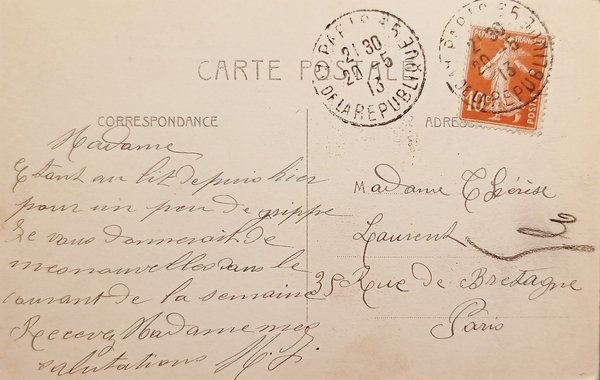 CARTE POSTALE
PARIS
21 30
20 - 5
13
DE LA REPUBLIQUE
PARIS
21 30
20 - 5
13
DE LA REPUBLIQUE
10
POSTES
CORRESPONDANCE
Madame
Etant au lit depuis hier
pour un peu de grippe
Je vous donnerait de
mes nouvelles dans le
courant de la semaine
Recevez Madame mes
salutations
ADRESSE
Madame Thérèse
Laurent
35 Rue de Bretagne
Paris